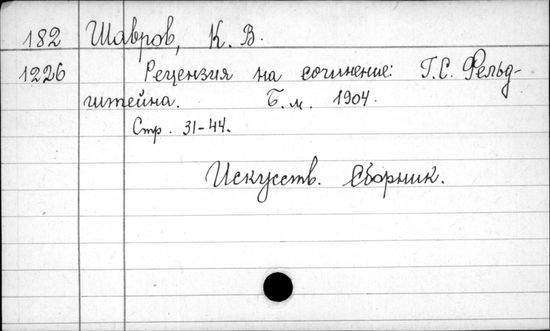 182 Шавров, К. В.
1226 Рецензия на сочинение: Г. С. Фельд-
штейна. Б. м. 1904.
Стр. 31-44.
Искусств. Сборник.